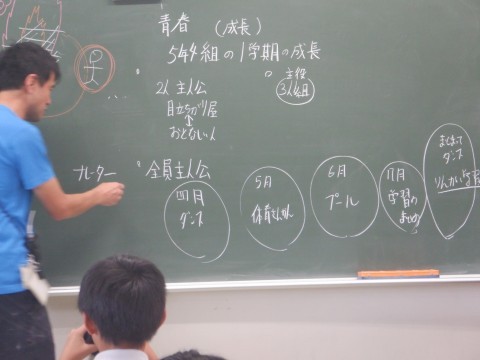 青春 (成長)
544組の1学期の成長
2人主人公
目立ちがり屋
↕
おとなしい人
。主役
3人組
ナレーター 。全員主人公
四月
ダンス
5月
6月
プール
7月
学習の
まとめ
ダンス
りんかい学校